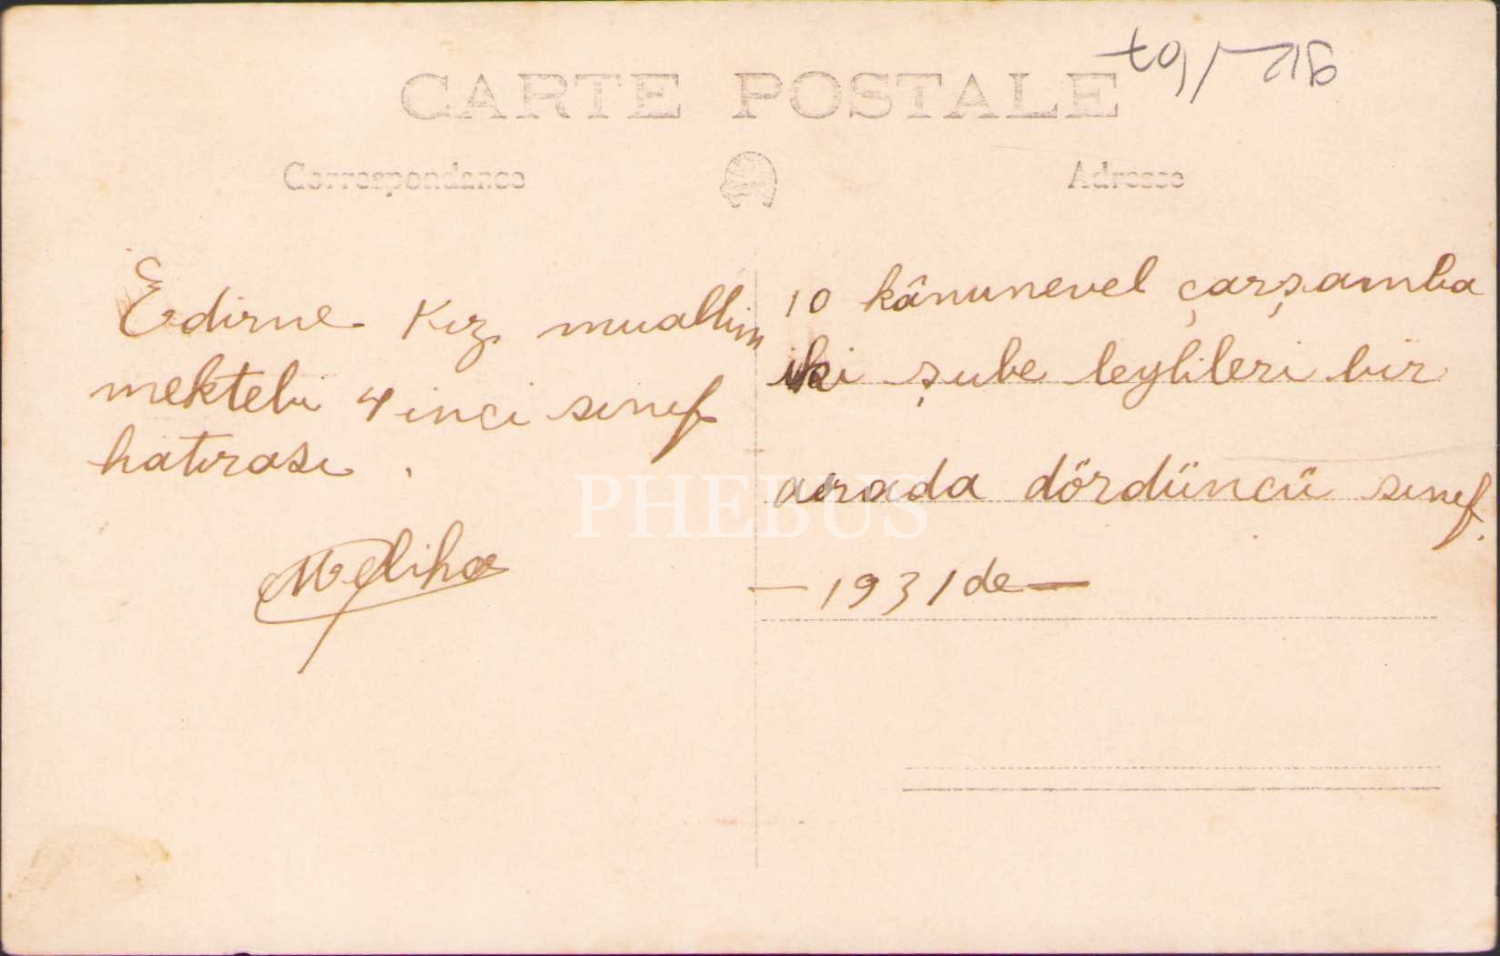 CARTE POSTALE
Correspondance
Adresse
Edirne Kız muallim
mektebi 4 inci sınıf
hatırası.
Meliha
10 kânunevel çarşamba
iki şube leylileri bir
arada dördüncü sınıf.
— 1931 de —
PHEBUS